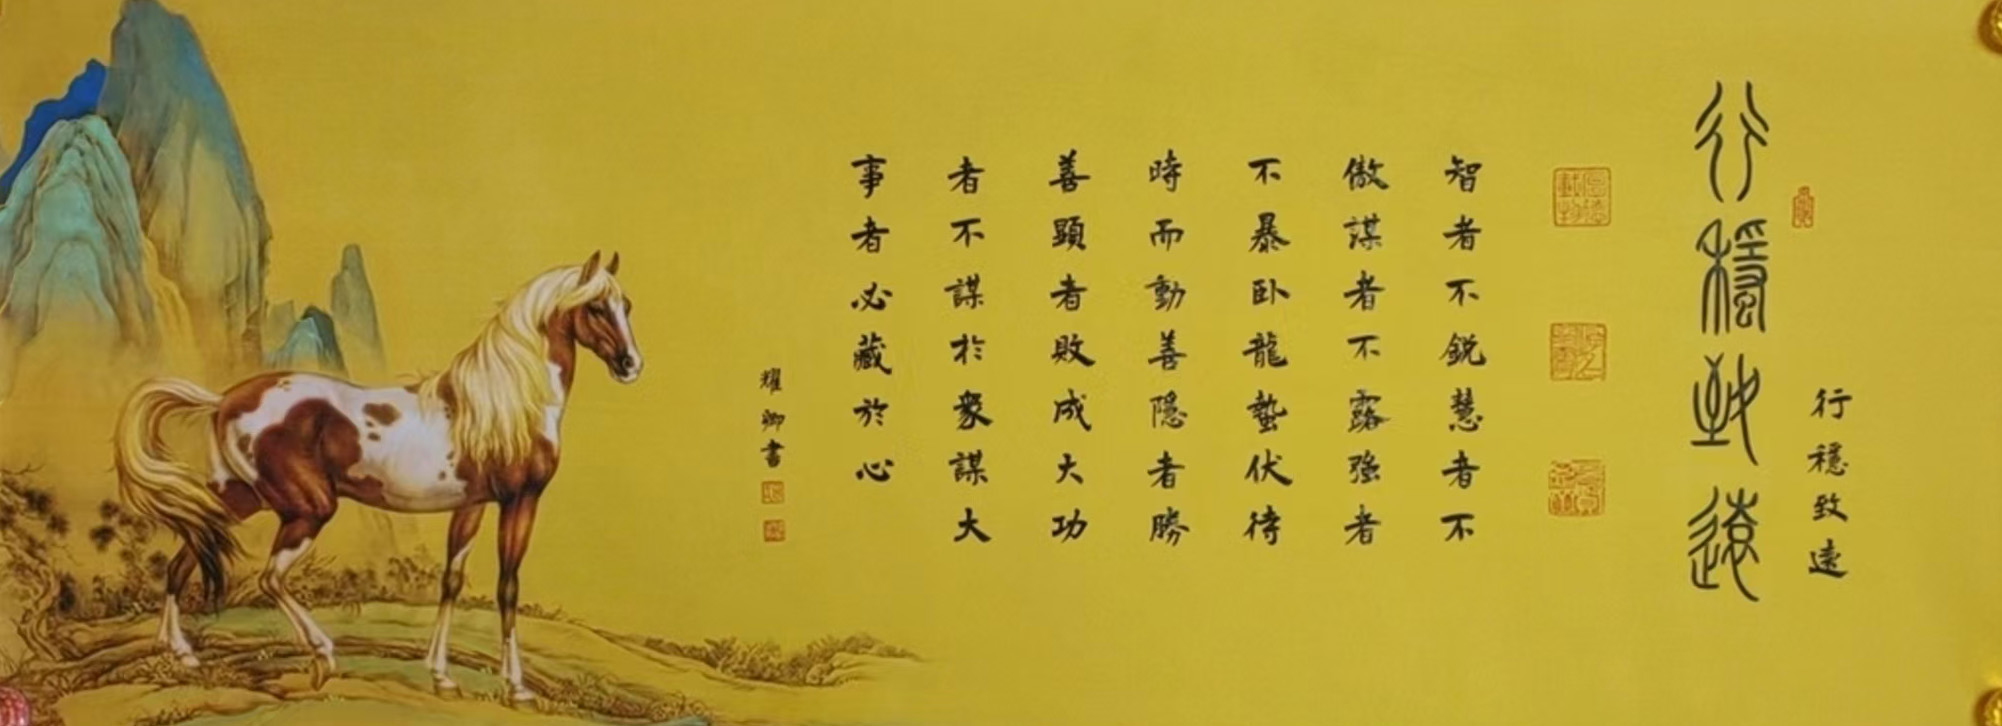 行穩致遠
行穩致遠
智者不銳慧者不
傲謀者不露強者
不暴臥龍蟄伏待
時而動善隱者勝
善顯者敗成大功
者不謀於衆謀大
事者必藏於心
耀卿書